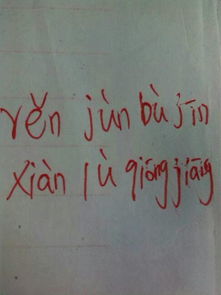 rěn jùn bù jīn
xiàn lù qióng jiāng